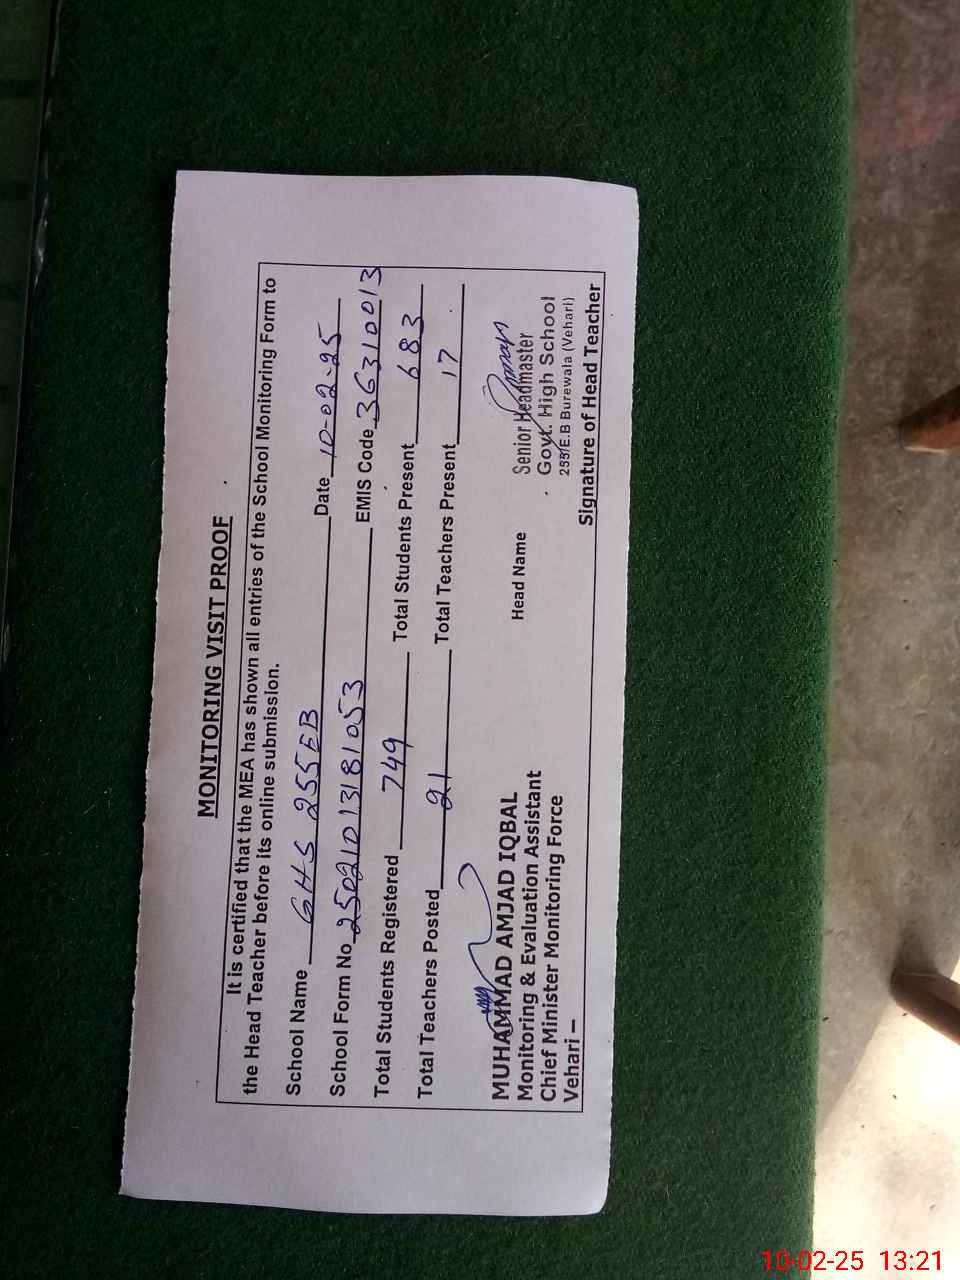 MONITORING VISIT PROOF
It is certified that the MEA has shown all entries of the School Monitoring Form to
the Head Teacher before its online submission.
School Name GHS 255EB Date 10-02-25
School Form No 25021013181053 EMIS Code 36310013
Total Students Registered 749 Total Students Present 683
Total Teachers Posted 21 Total Teachers Present 17
MUHAMMAD AMJAD IQBAL
Monitoring & Evaluation Assistant
Chief Minister Monitoring Force
Vehari –
Head Name
Senior Headmaster
Govt. High School
255/E.B Burewala (Vehari)
Signature of Head Teacher
10-02-25 13:21